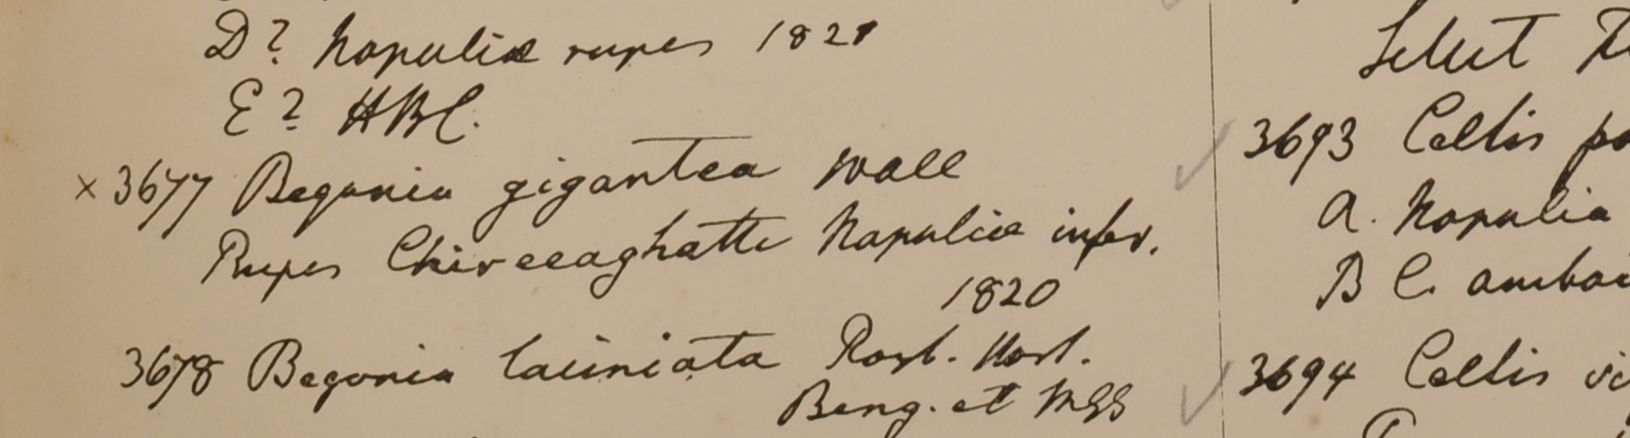 D? Napaliæ rupes 1821
E? HBC.
× 3677 Begonia gigantea Wall
Rupes Chireeaghatte Napaliæ infer.
1820
3678 Begonia laciniata Roxb. Hort.
Beng. et MSS
Select
3693 Celtis
A. Napalia
B C.
3694 Celtis